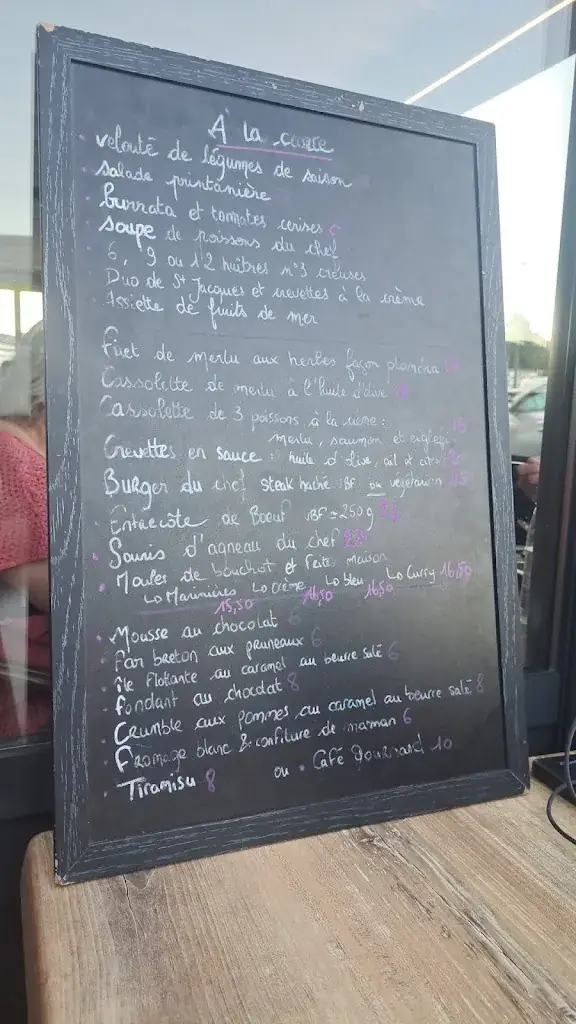 À la carte
• velouté de légumes de saison
• salade printanière
• burrata et tomates cerises
• soupe de poissons du chef
• 6, 9 ou 12 huîtres n°3 creuses
• Duo de St Jacques et crevettes à la crème
• Assiette de fruits de mer
Filet de merlu aux herbes façon plancha
Cassolette de merlu à l'huile d'olive
Cassolette de 3 poissons à la crème :
merlu, saumon et
Crevettes en sauce : huile d'olive, ail et
Burger du chef steak haché VBF ou végétarien
• Entrecôte de Boeuf VBF ≃ 250 g
• Souris d'agneau du chef
• Moules de bouchot et frites maison
↳ Marinières ↳ crème ↳ bleu ↳ Curry 16,50
15,50 16,50 16,50
• Mousse au chocolat 6
• Far breton aux pruneaux 6
• île flottante au caramel au beurre salé 6
• fondant au chocolat 8
• Crumble aux pommes au caramel au beurre salé 8
• Fromage blanc & confiture de maman 6
• Tiramisu 8 ou • Café gourmand 10